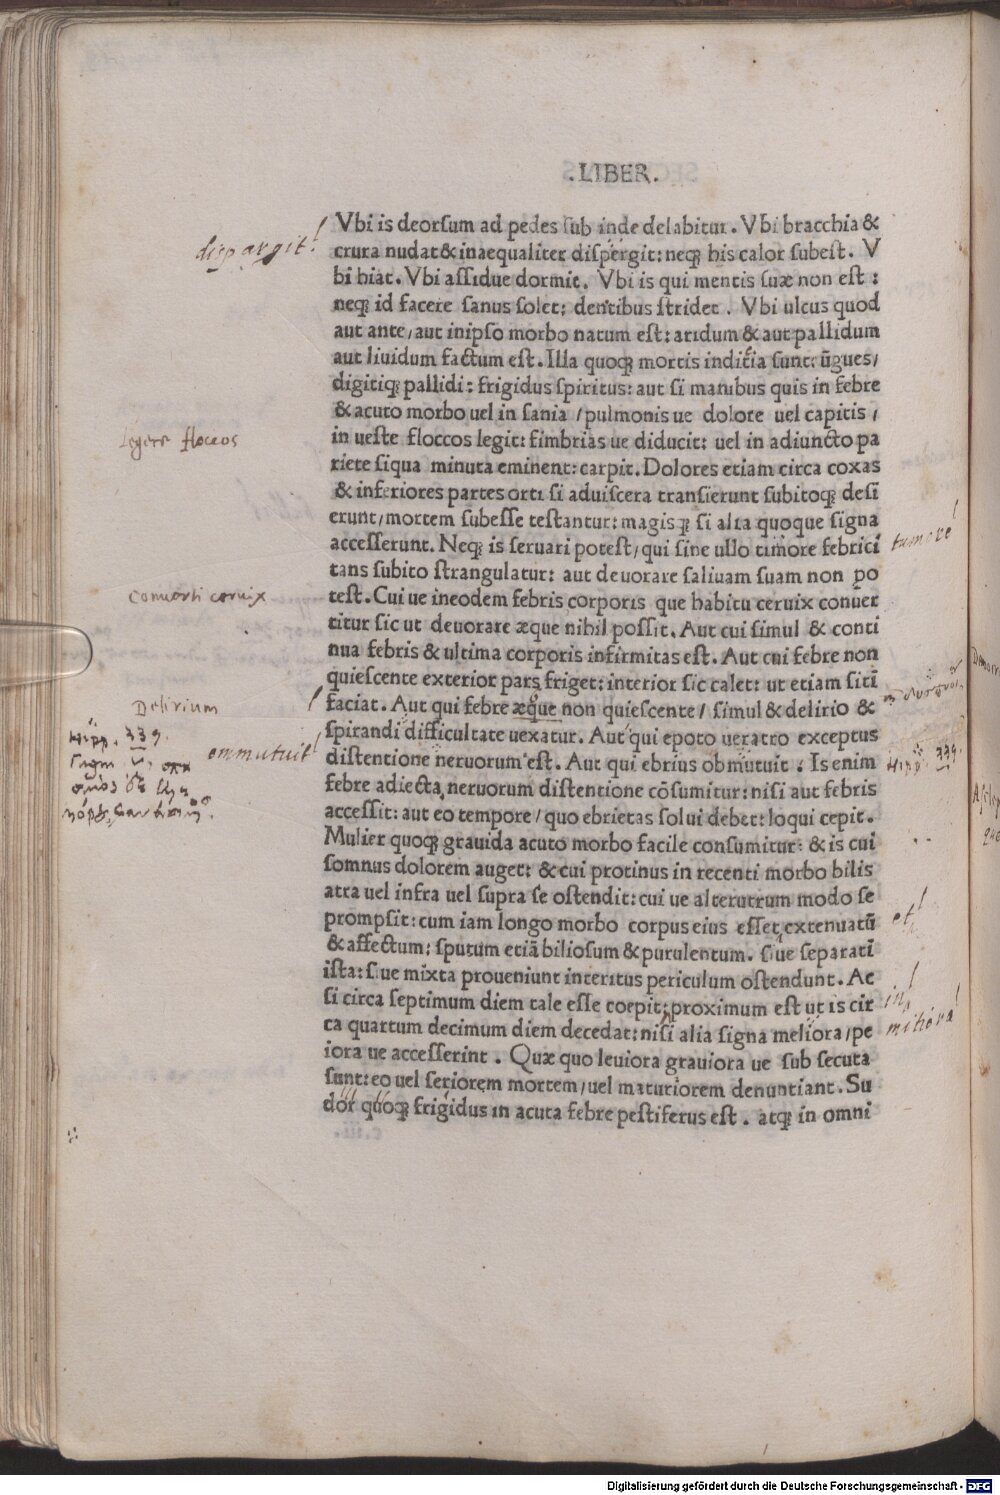 .LIBER.
Vbi is deorsum ad pedes sub inde delabitur. Vbi bracchia &
crura nudat & inaequaliter dispergit: neqꝫ his calor subest. V
bi hiat. Vbi assidue dormit. Vbi is qui mentis suæ non est :
neqꝫ id facere sanus solet: dentibus stridet . Vbi ulcus quod
aut ante/aut inipso morbo natum est: aridum & aut pallidum
aut liuidum factum est. Illa quoqꝫ mortis inditia sunt: ũgues/
digitiqꝫ pallidi: frigidus spiritus: aut si manibus quis in febre
& acuto morbo uel in sania /pulmonis ue dolore uel capitis /
in ueste floccos legit: fimbrias ue diducit: uel in adiuncto pa
riete siqua minuta eminent: carpit. Dolores etiam circa coxas
& inferiores partes orti si aduiscera transierunt subitoqꝫ desi
erunt/mortem subesse testantur: magisqꝫ si alia quoque signa
accesserunt. Neqꝫ is seruari potest/qui sine ullo timore febrici
tans subito strangulatur: aut deuorare saliuam suam non po
test. Cui ue ineodem febris corporis que habitu ceruix conuer
titur sic ut deuorare æque nihil possit. Aut cui simul & conti
nua febris & ultima corporis infirmitas est. Aut cui febre non
quiescente exterior pars friget: interior sic calet: ut etiam sitĩ
faciat. Aut qui febre æque non quiescente/ simul & delirio &
spirandi difficultate uexatur. Aut qui epoto ueratro exceptus
distentione neruorum est. Aut qui ebrius obmutuit : Is enim
febre adiecta neruorum distentione cõsumitur: nisi aut febris
accessit: aut eo tempore/quo ebrietas solui debet: loqui cepit.
Mulier quoqꝫ grauida acuto morbo facile consumitur: & is cui
somnus dolorem auget: & cui protinus in recenti morbo bilis
atra uel infra uel supra se ostendit: cui ue alterutrum modo se
prompsit: cum iam longo morbo corpus eius esset extenuatũ
& affectum: sputum etiã biliosum & purulentum. siue separatĩ
ista: siue mixta proueniunt interitus periculum ostendunt. Ac
si circa septimum diem tale esse coepit: proximum est ut is cir
ca quartum decimum diem decedat: nisi alia signa meliora/pe
iora ue accesserint . Quæ quo leuiora grauiora ue sub secuta
sunt: eo uel seriorem mortem/uel maturiorem denuntiant. Su
dor quoqꝫ frigidus in acuta febre pestiferus est . atqꝫ in omni
dispargit!
legere floccos
conuorti ceruix
Delirium
Hipp. 339.
emmutuit!
tumore!
Hipp. 339.
et!
in!
mitiora!
Digitalisierung gefördert durch die Deutsche Forschungsgemeinschaft - DFG